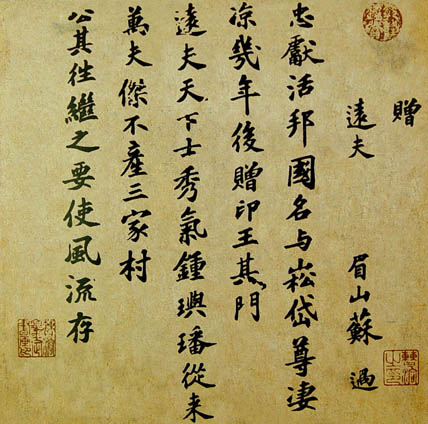 贈
遠夫
眉山蘇過
忠獻活邦國名与崧岱尊淒
凉幾年後贈印王其門
遠夫天下士秀氣鍾璵璠從来
萬夫傑不產三家村
公其往繼之要使風流存